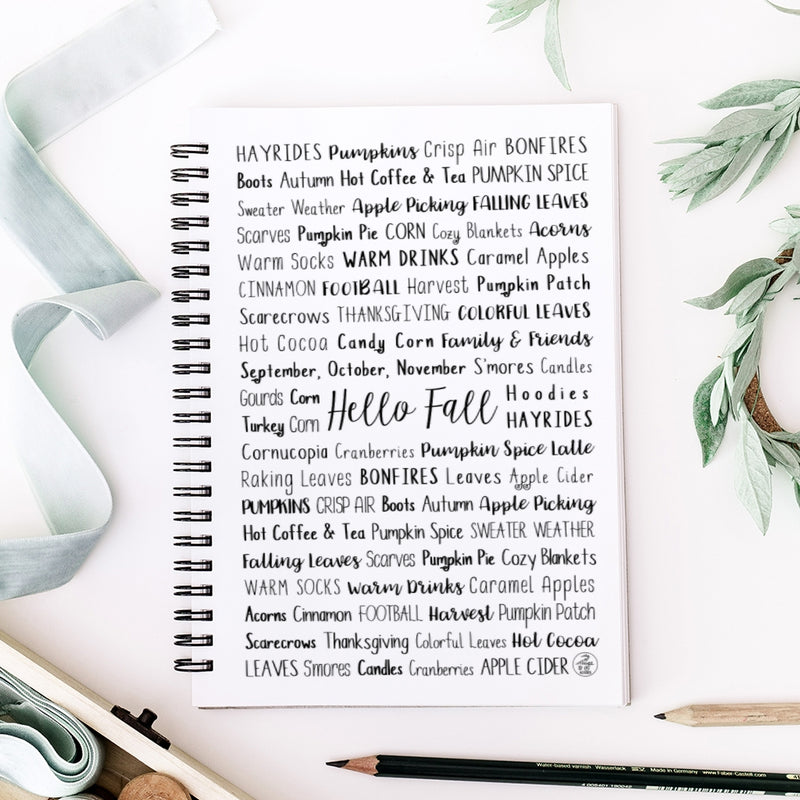 HAYRIDES Pumpkins Crisp Air BONFIRES
Boots Autumn Hot Coffee & Tea PUMPKIN SPICE
Sweater Weather Apple Picking FALLING LEAVES
Scarves Pumpkin Pie CORN Cozy Blankets Acorns
Warm Socks WARM DRINKS Caramel Apples
CINNAMON FOOTBALL Harvest Pumpkin Patch
Scarecrows THANKSGIVING COLORFUL LEAVES
Hot Cocoa Candy Corn Family & Friends
September, October, November S'mores Candles
Gourds Corn
Turkey Corn
Hello Fall
Hoodies
HAYRIDES
Cornucopia Cranberries Pumpkin Spice Latte
Raking Leaves BONFIRES Leaves Apple Cider
PUMPKINS CRISP AIR Boots Autumn Apple Picking
Hot Coffee & Tea Pumpkin Spice SWEATER WEATHER
Falling Leaves Scarves Pumpkin Pie Cozy Blankets
WARM SOCKS Warm Drinks Caramel Apples
Acorns Cinnamon FOOTBALL Harvest Pumpkin Patch
Scarecrows Thanksgiving Colorful Leaves Hot Cocoa
LEAVES S'mores Candles Cranberries APPLE CIDER
Water-based varnish Wasserlack Made in Germany www.Faber-Castell.com